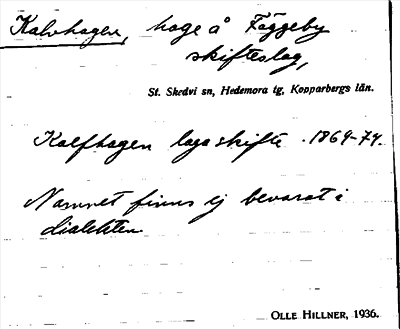 Kalvhagen, hage å Fäggeby
skifteslag,
St. Skedvi sn, Hedemora tg, Kopparbergs län.
Kalfhagen laga skifte 1869-74.
Namnet finns ej bevarat i
dialekten
OLLE HILLNER, 1936.